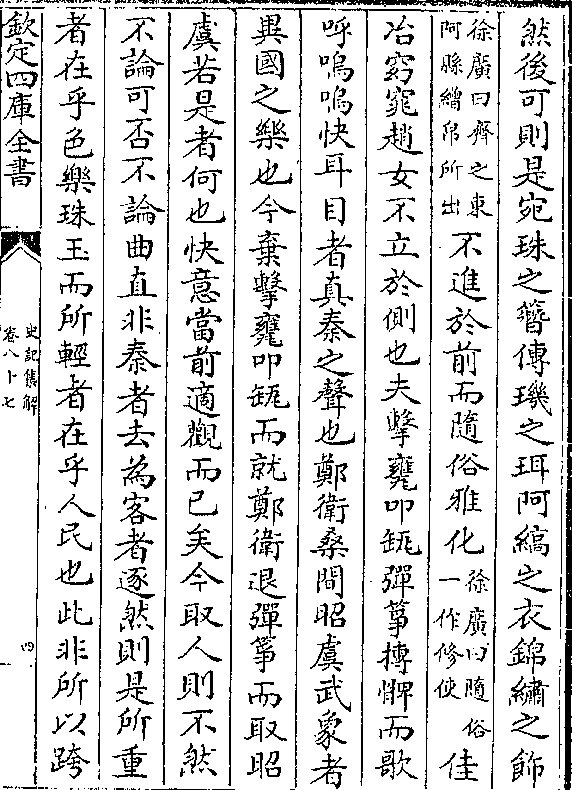 然後可則是宛珠之簪傅璣之珥阿縞之衣錦繡之飾
徐廣曰齊之東
阿縣繒帛所出
不進於前而隨俗雅化
徐廣曰隨俗
一作修使
佳
冶窈窕趙女不立於側也夫擊甕叩缻彈箏搏髀而歌
呼嗚嗚快耳目者真秦之聲也鄭衛桑間昭虞武象者
異國之樂也今棄擊甕叩缻而就鄭衛退彈箏而取昭
虞若是者何也快意當前適觀而已矣今取人則不然
不論可否不論曲直非秦者去為客者逐然則是所重
者在乎色樂珠玉而所輕者在乎人民也此非所以跨
欽定四庫全書
史記集解
卷八十七
四